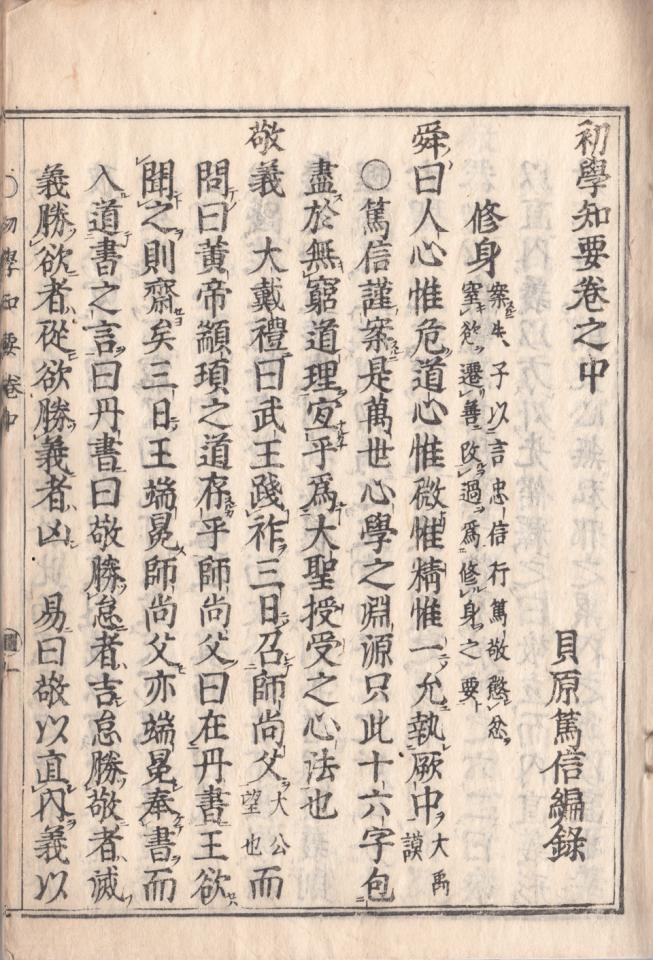 初學知要卷之中
貝原篤信編錄
修身 案朱子以言忠信行篤敬懲忿
窒慾遷善改過爲修身之要
舜曰人心惟危道心惟微惟精惟一允執厥中 大禹謨
〇篤信謹案是萬世心學之淵源只此十六字包
盡於無窮道理宜乎爲大聖授受之心法也
敬義 大戴禮曰武王踐祚三日召師尚父 大公望也 而
問曰黄帝顓頊之道存乎師尚父曰在丹書王欲
聞之則齋矣三日王端冕師尚父亦端冕奉書而
入道書之言曰丹書曰敬勝怠者吉怠勝敬者滅
義勝欲者從欲勝義者凶 易曰敬以直內義以
〇初學知要卷中